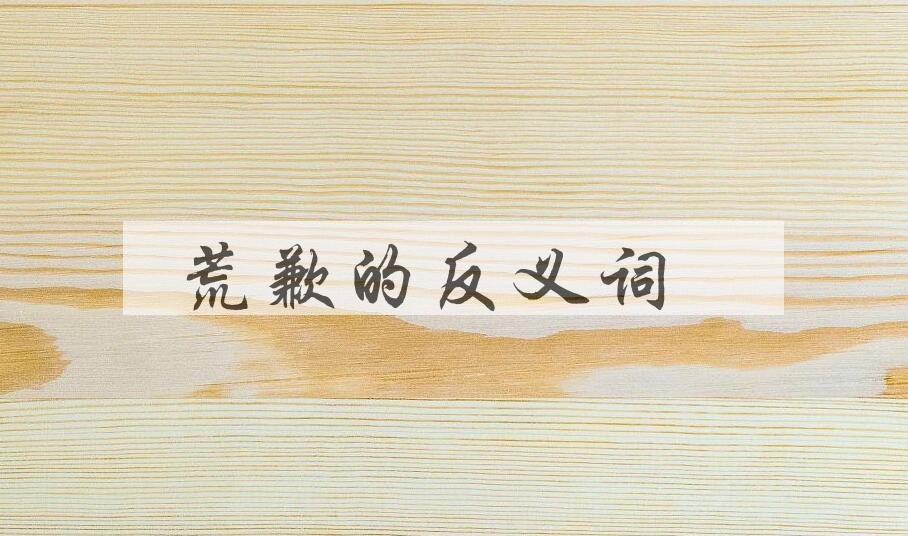 荒歉的反义词